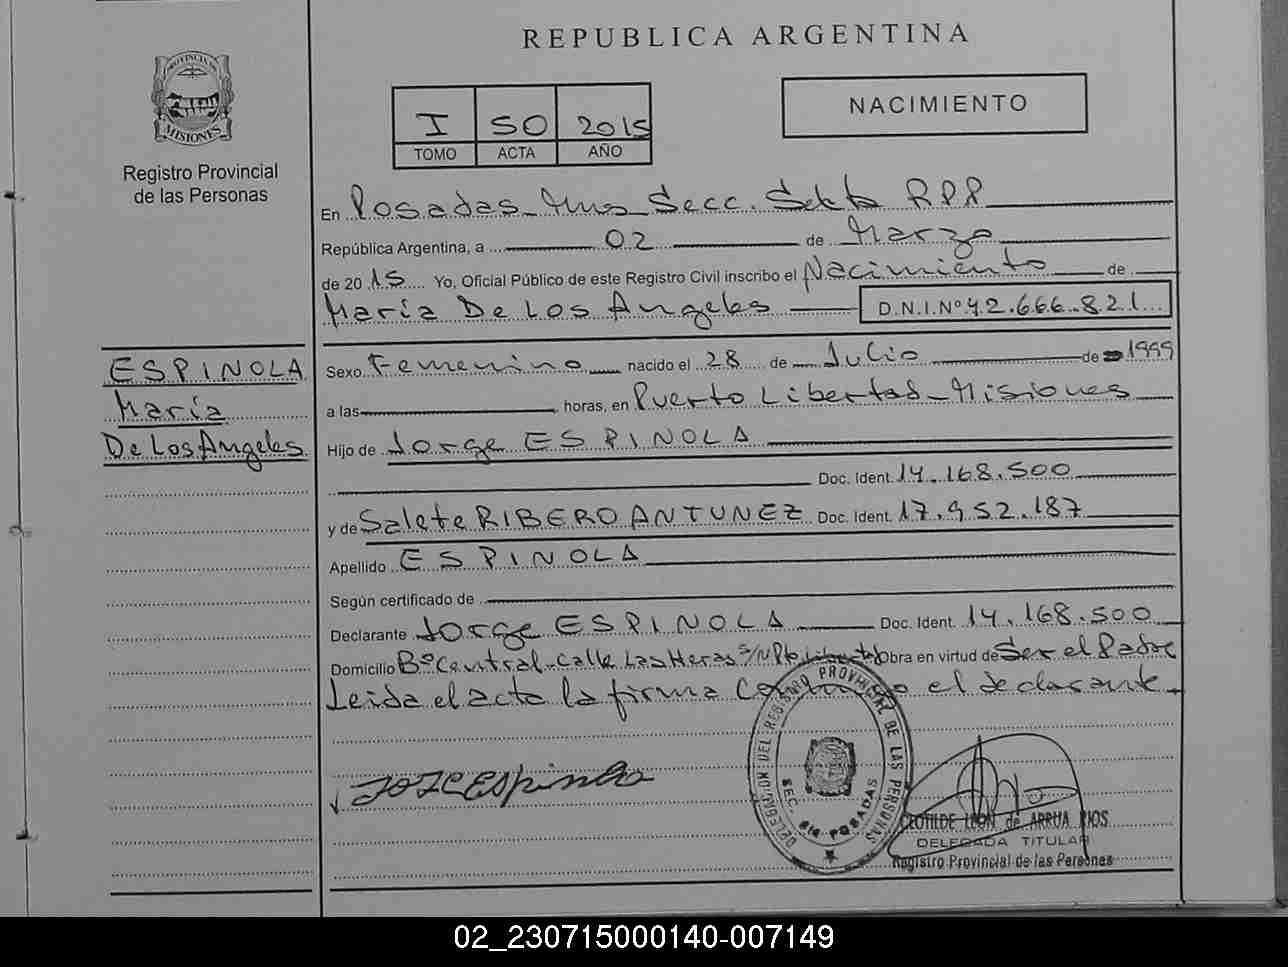 REPUBLICA ARGENTINA
PROVINCIA DE
MISIONES
Registro Provincial
de las Personas
I 50 2015
TOMO ACTA AÑO
NACIMIENTO
En Posadas - Mnes Secc. Sexta RPP
República Argentina, a 02 de Marzo
de 2015 Yo, Oficial Público de este Registro Civil inscribo el Nacimiento de
María De Los Angeles D.N.I.Nº 42.666.821
ESPINOLA
María
De Los Angeles
Sexo Femenino nacido el 28 de Julio de 1999
a las horas, en Puerto Libertad - Misiones
Hijo de Jorge ESPINOLA
Doc. Ident. 14.168.500
y de Salete RIBERO ANTUNEZ Doc. Ident. 17.952.187
Apellido ESPINOLA
Según certificado de
Declarante Jorge ESPINOLA Doc. Ident. 14.168.500
Domicilio Bº Central - Calle Las Heras s/N Pto Libertad Obra en virtud de Ser el Padre
Leida el acta la firma Conmigo el declarante.
DELEGACION DEL REGISTRO PROVINCIAL DE LAS PERSONAS
SEC. 6ta POSADAS
CLOTILDE LEON de ARRUA RIOS
DELEGADA TITULAR
Registro Provincial de las Personas
02_230715000140-007149